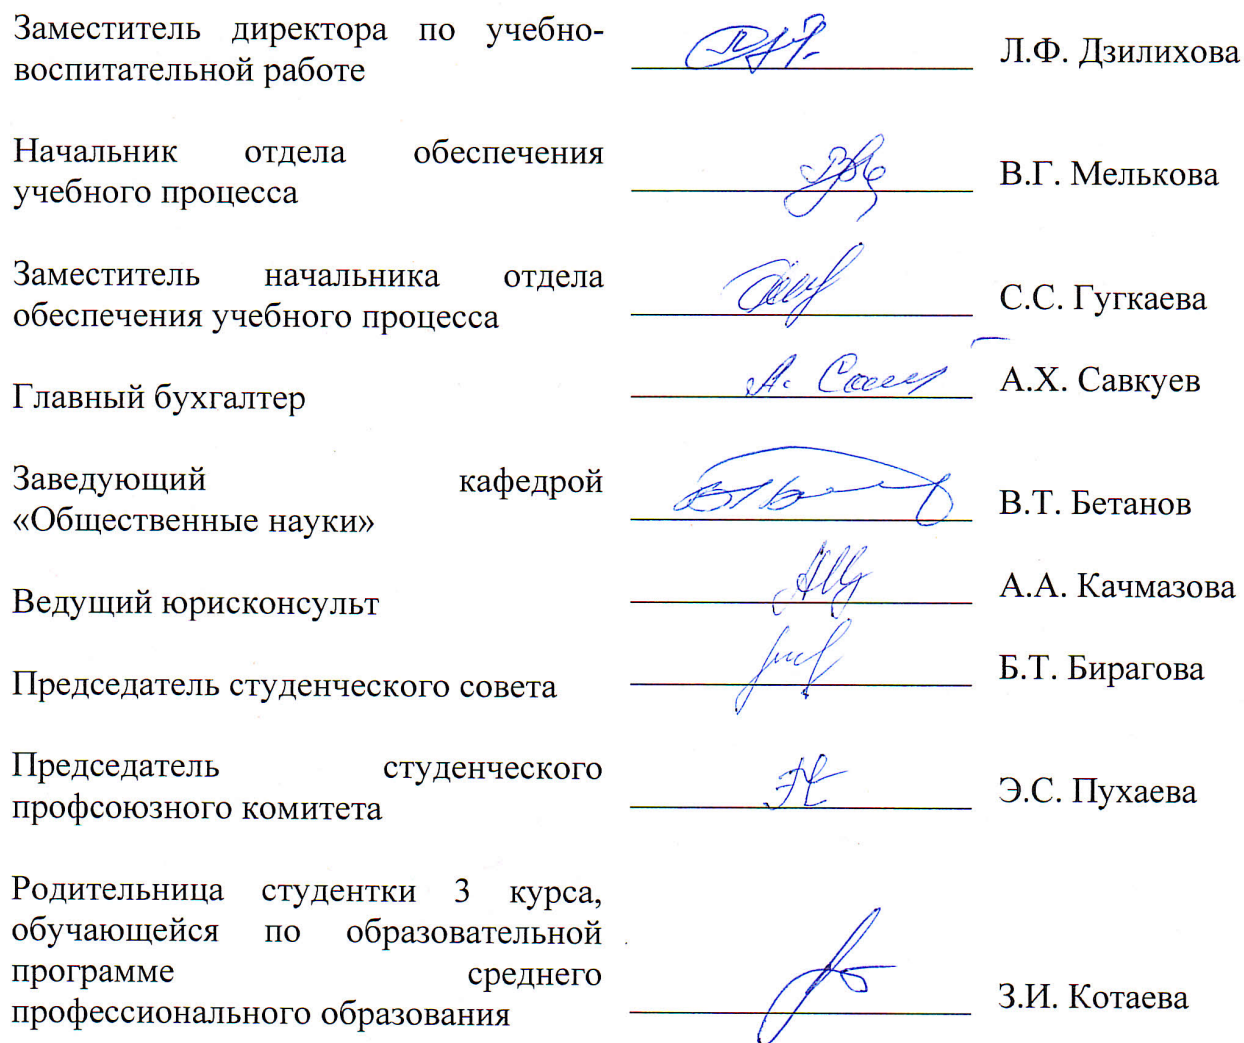 Заместитель директора по учебно-
воспитательной работе
Л.Ф. Дзилихова
Начальник отдела обеспечения
учебного процесса
В.Г. Мелькова
Заместитель начальника отдела
обеспечения учебного процесса
С.С. Гугкаева
Главный бухгалтер
А.Х. Савкуев
Заведующий кафедрой
«Общественные науки»
В.Т. Бетанов
Ведущий юрисконсульт
А.А. Качмазова
Председатель студенческого совета
Б.Т. Бирагова
Председатель студенческого
профсоюзного комитета
Э.С. Пухаева
Родительница студентки 3 курса,
обучающейся по образовательной
программе среднего
профессионального образования
З.И. Котаева